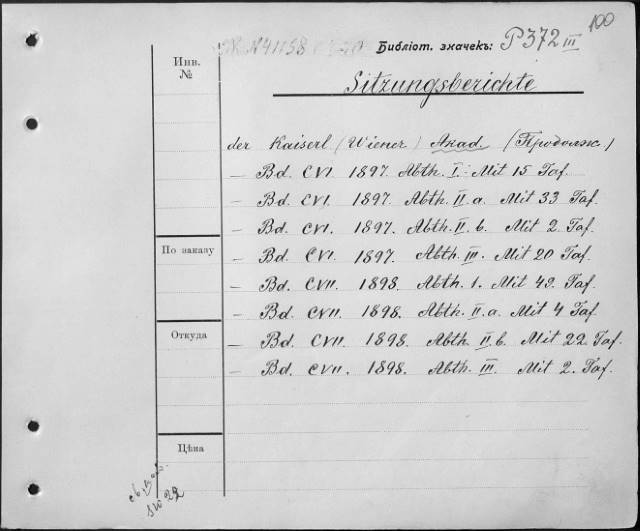 100
Библіот. значекъ: P372 III
Инв.
№
Sitzungsberichte
der Kaiserl (Wiener) Akad (Продолж.)
– Bd. CVI 1897. Abth. I. Mit 15 Taf.
– Bd. CVI. 1897. Abth. II.a. Mit 33 Taf.
– Bd. CVI. 1897. Abth. II. b. Mit 2. Taf.
По заказу
– Bd. CVI. 1897. Abth. III. Mit 20 Taf.
– Bd. CVII. 1898. Abth. 1. Mit 49. Taf.
– Bd. CVII. 1898. Abth. II.a. Mit 4 Taf
Откуда
– Bd. CVII. 1898. Abth. II b. Mit 22 Taf.
– Bd. CVII. 1898. Abth. III. Mit 2. Taf.
Цѣна